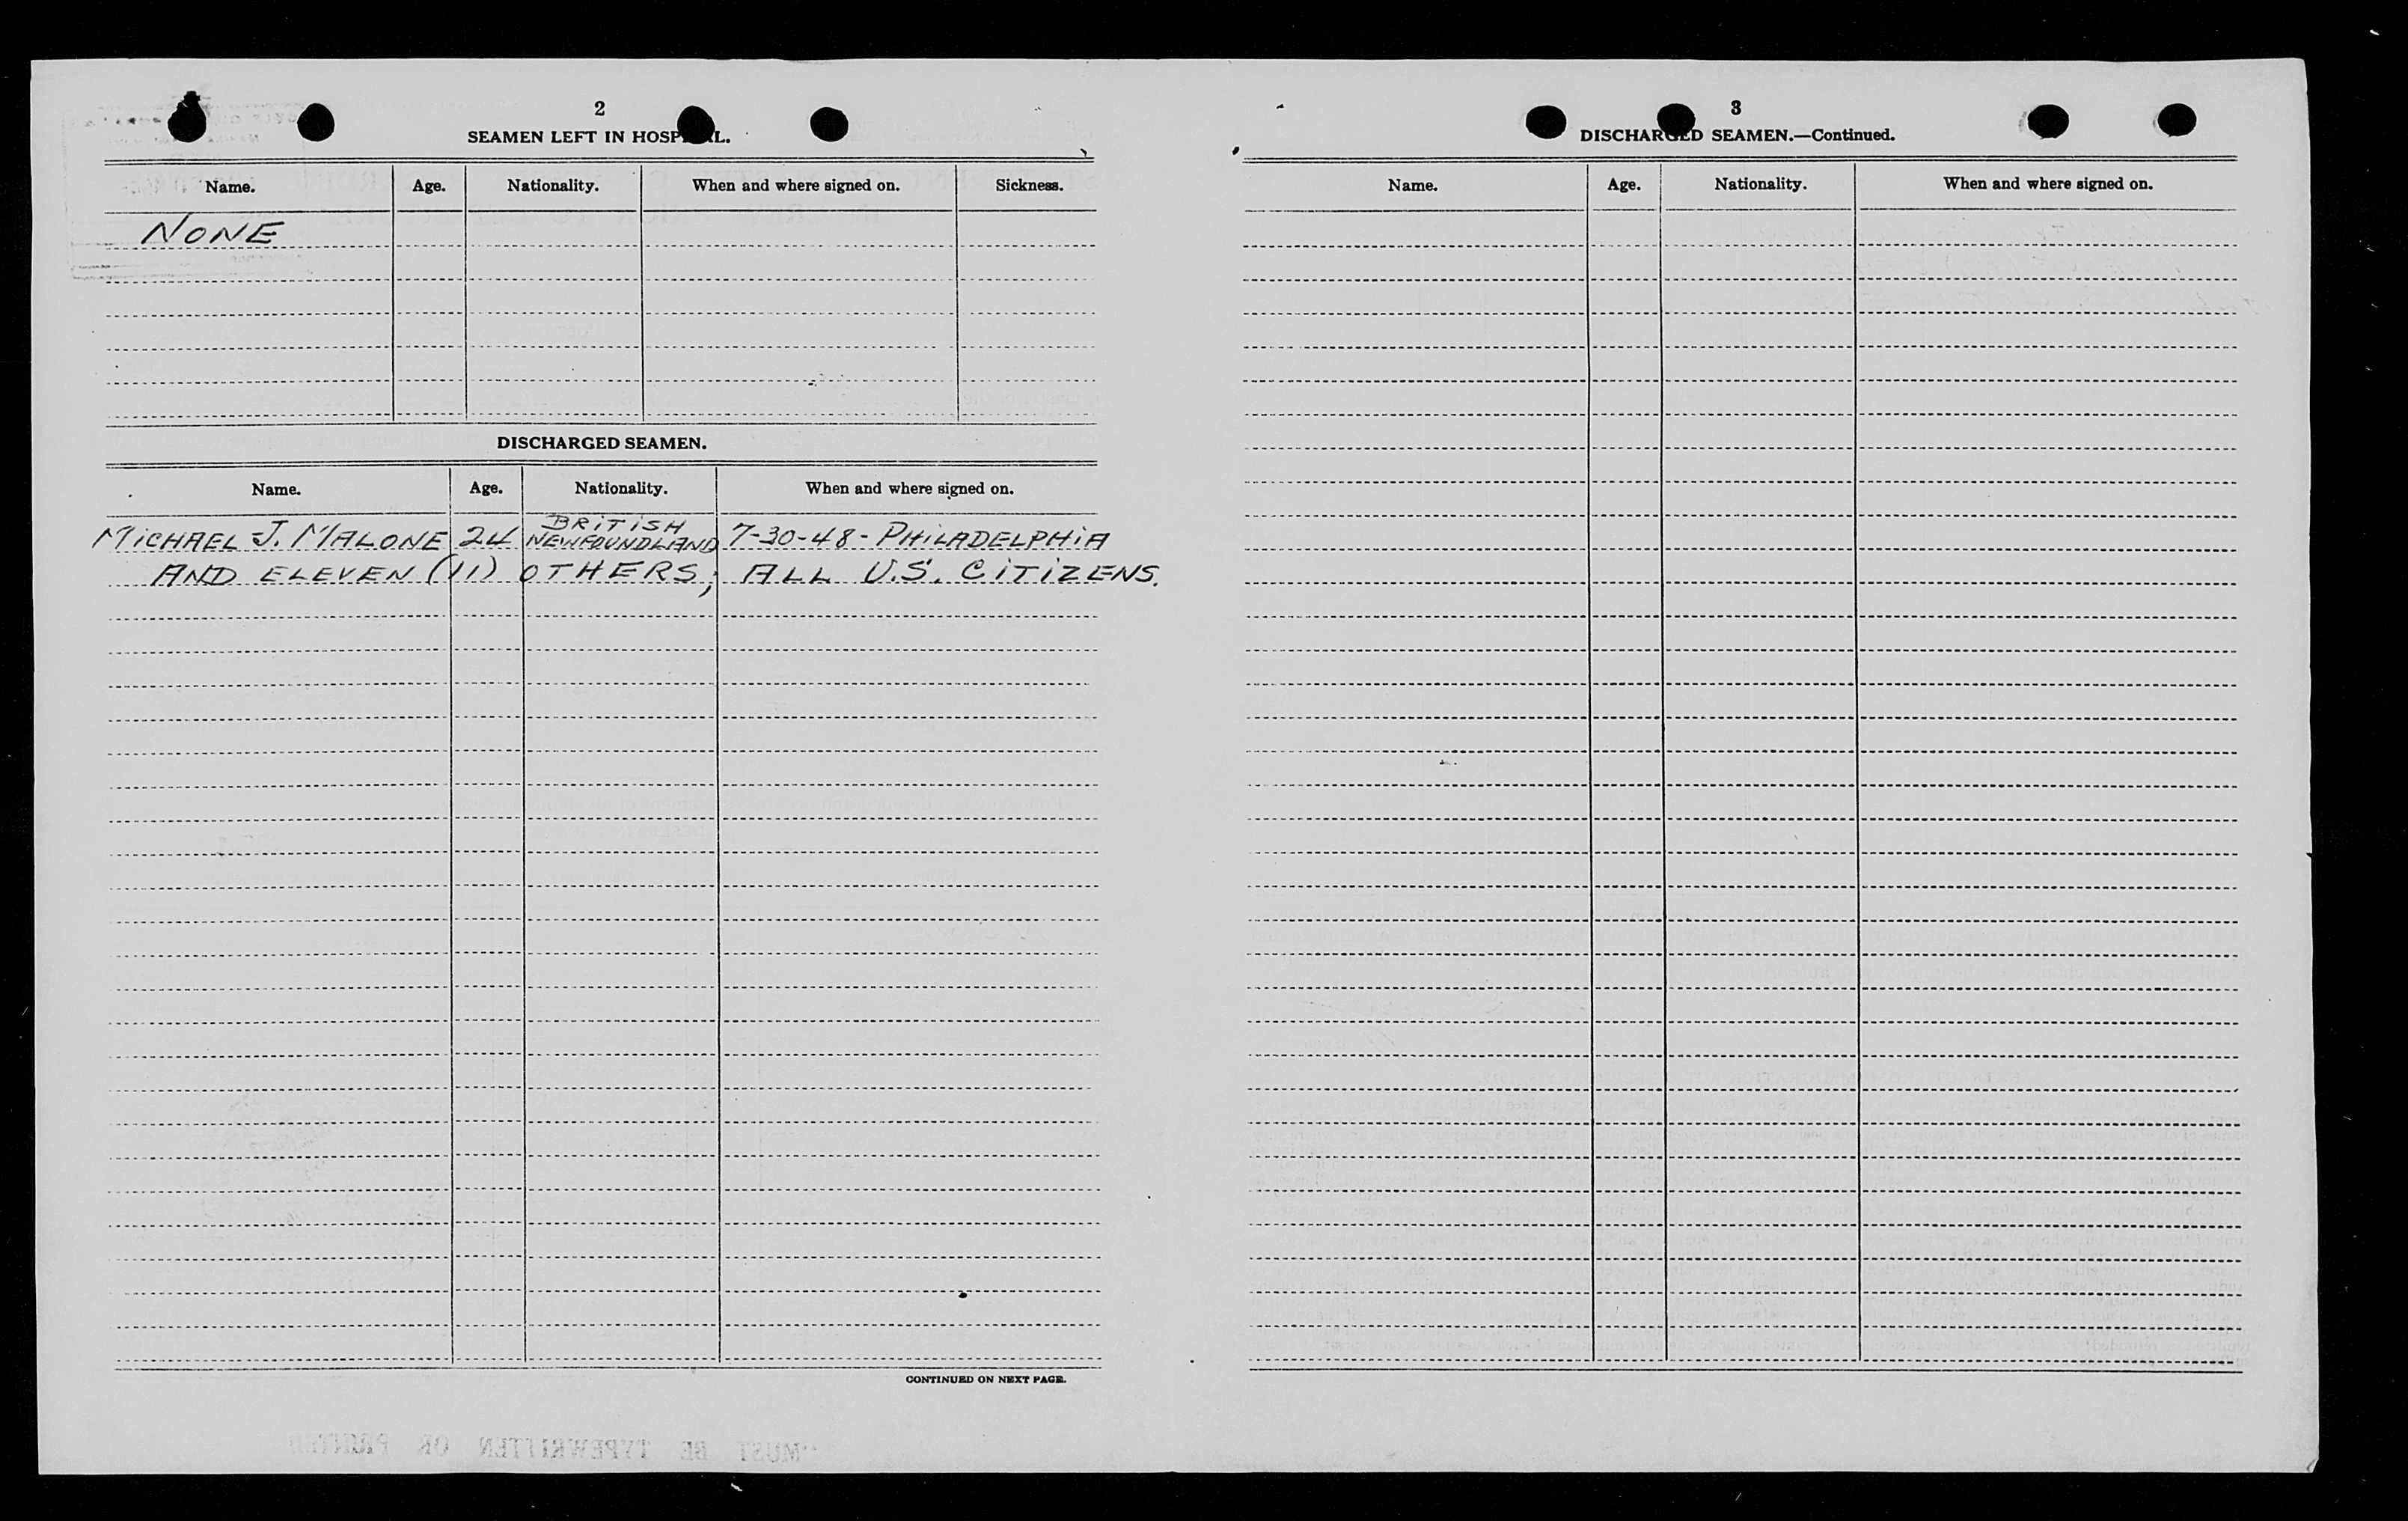 2
SEAMEN LEFT IN HOSPITAL.
Name. Age. Nationality. When and where signed on. Sickness.
NONE
DISCHARGED SEAMEN.
Name. Age. Nationality. When and where signed on.
MICHAEL J. MALONE 24 BRITISH NEWFOUNDLAND 7-30-48- PHILADELPHIA
AND ELEVEN (11) OTHERS, ALL U.S. CITIZENS.
CONTINUED ON NEXT PAGE.
"MUST BE TYPEWRITTEN OR PRINTED
3
DISCHARGED SEAMEN.—Continued.
Name. Age. Nationality. When and where signed on.